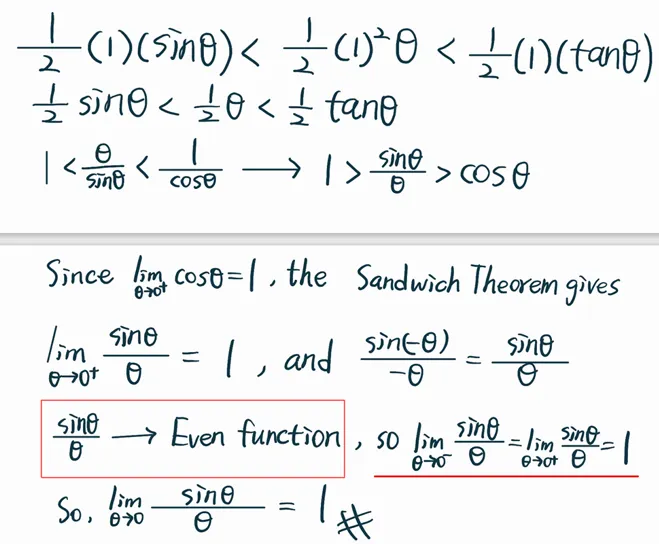 1/2 (1)(sinθ) < 1/2 (1)²θ < 1/2 (1)(tanθ)
1/2 sinθ < 1/2 θ < 1/2 tanθ
1 < θ/sinθ < 1/cosθ ⟶ 1 > sinθ/θ > cosθ
Since lim θ→0⁺ cosθ = 1, the Sandwich Theorem gives
lim θ→0⁺ sinθ/θ = 1, and sin(-θ)/-θ = sinθ/θ
sinθ/θ ⟶ Even function, so lim θ→0⁻ sinθ/θ = lim θ→0⁺ sinθ/θ = 1
So, lim θ→0 sinθ/θ = 1 #